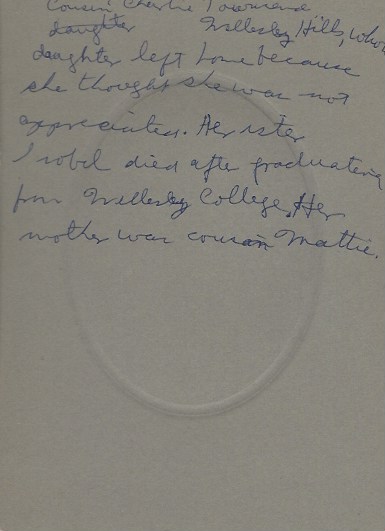 Cousin Charlie Townsend
daughter Wellesley Hills, whose
daughter left home because
she thought she was not
appreciated. Her sister
Isobel died after graduating
from Wellesley College. Her
mother was cousin Mattie.